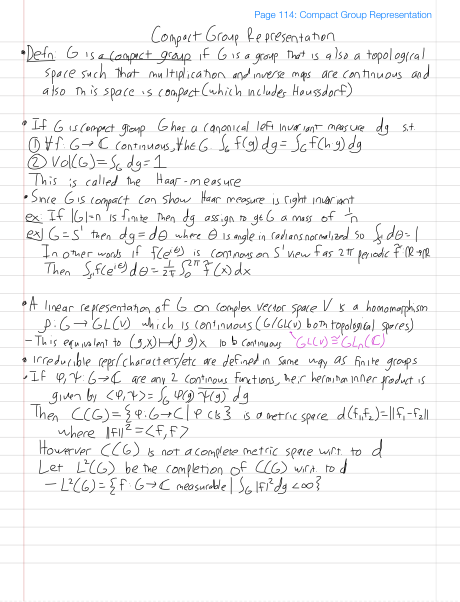 Page 114: Compact Group Representation
Compact Group Representation
• Defn: G is a compact group if G is a group that is also a topological
space such that multiplication and inverse maps are continuous and
also this space is compact (which includes Haussdorf)
• If G is compact group G has a canonical left invariant measure dg s.t
① ∀f: G→ℂ continuous, ∀h∈G ∫_G f(g)dg = ∫_G f(hg)dg
② Vol(G) = ∫_G dg = 1
This is called the Haar-measure
• Since G is compact can show Haar measure is right invariant
ex: If |G|=n is finite then dg assign to g∈G a mass of 1/n
ex: G=S¹ then dg=dθ where θ is angle in radians normalized so ∫_S¹ dθ=1
In other words if f(e^{iθ}) is continous on S¹ view f as 2π periodic f̃: ℝ→ℝ
Then ∫_S¹ f(e^{iθ})dθ = 1/2π ∫_0^{2π} f̃(x)dx
• A linear representation of G on complex vector space V is a homomorphism
ρ: G→GL(V) which is continuous (G/GL(V) both topological spaces)
- This equivalent to (g,x)↦(ρ g)x to b continuous GL(V)≅GL_n(ℂ)
• irreducible reps/characters/etc are defined in same way as finite groups
• If φ,ψ: G→ℂ are any 2 continous functions, their hermitian inner product is
given by <φ,ψ> = ∫_G φ(g) \overline{ψ(g)} dg
Then C(G) = {φ: G→ℂ | φ cts} is a metric space d(f₁,f₂)=||f₁-f₂||
where ||f||²=<f,f>
However C(G) is not a complete metric space w.r.t. to d
Let L²(G) be the completion of C(G) w.r.t. to d
- L²(G) = {f: G→ℂ measurable | ∫_G |f|² dg < ∞}